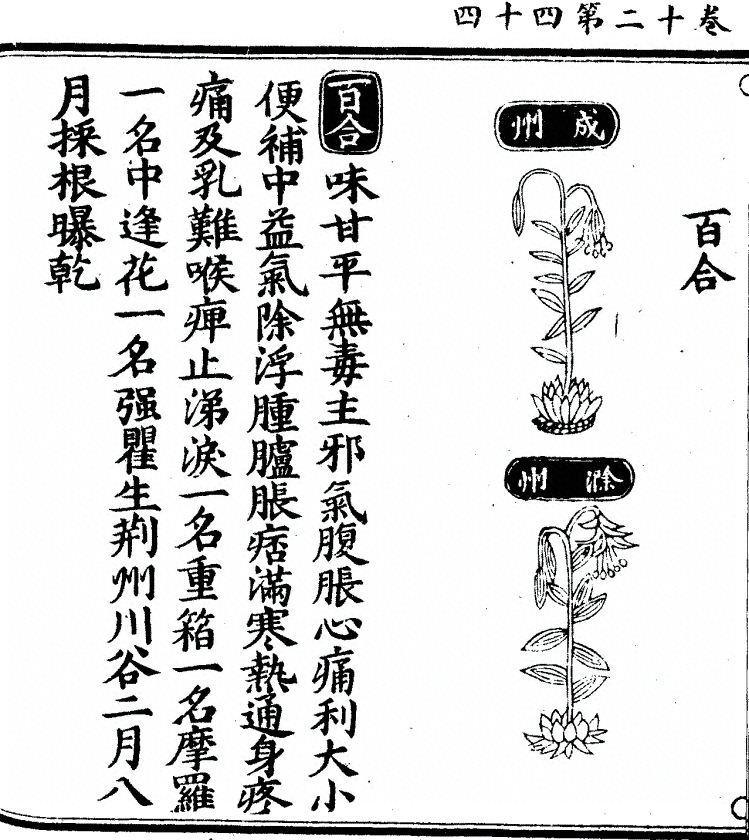 卷十二第四十四
百合
成州
滁州
百合 味甘平無毒主邪氣腹脹心痛利大小
便補中益氣除浮腫臚脹痞滿寒熱通身疼
痛及乳難喉痺止涕淚一名重箱一名摩羅
一名中逢花一名强瞿生荆州川谷二月八
月採根曝乾